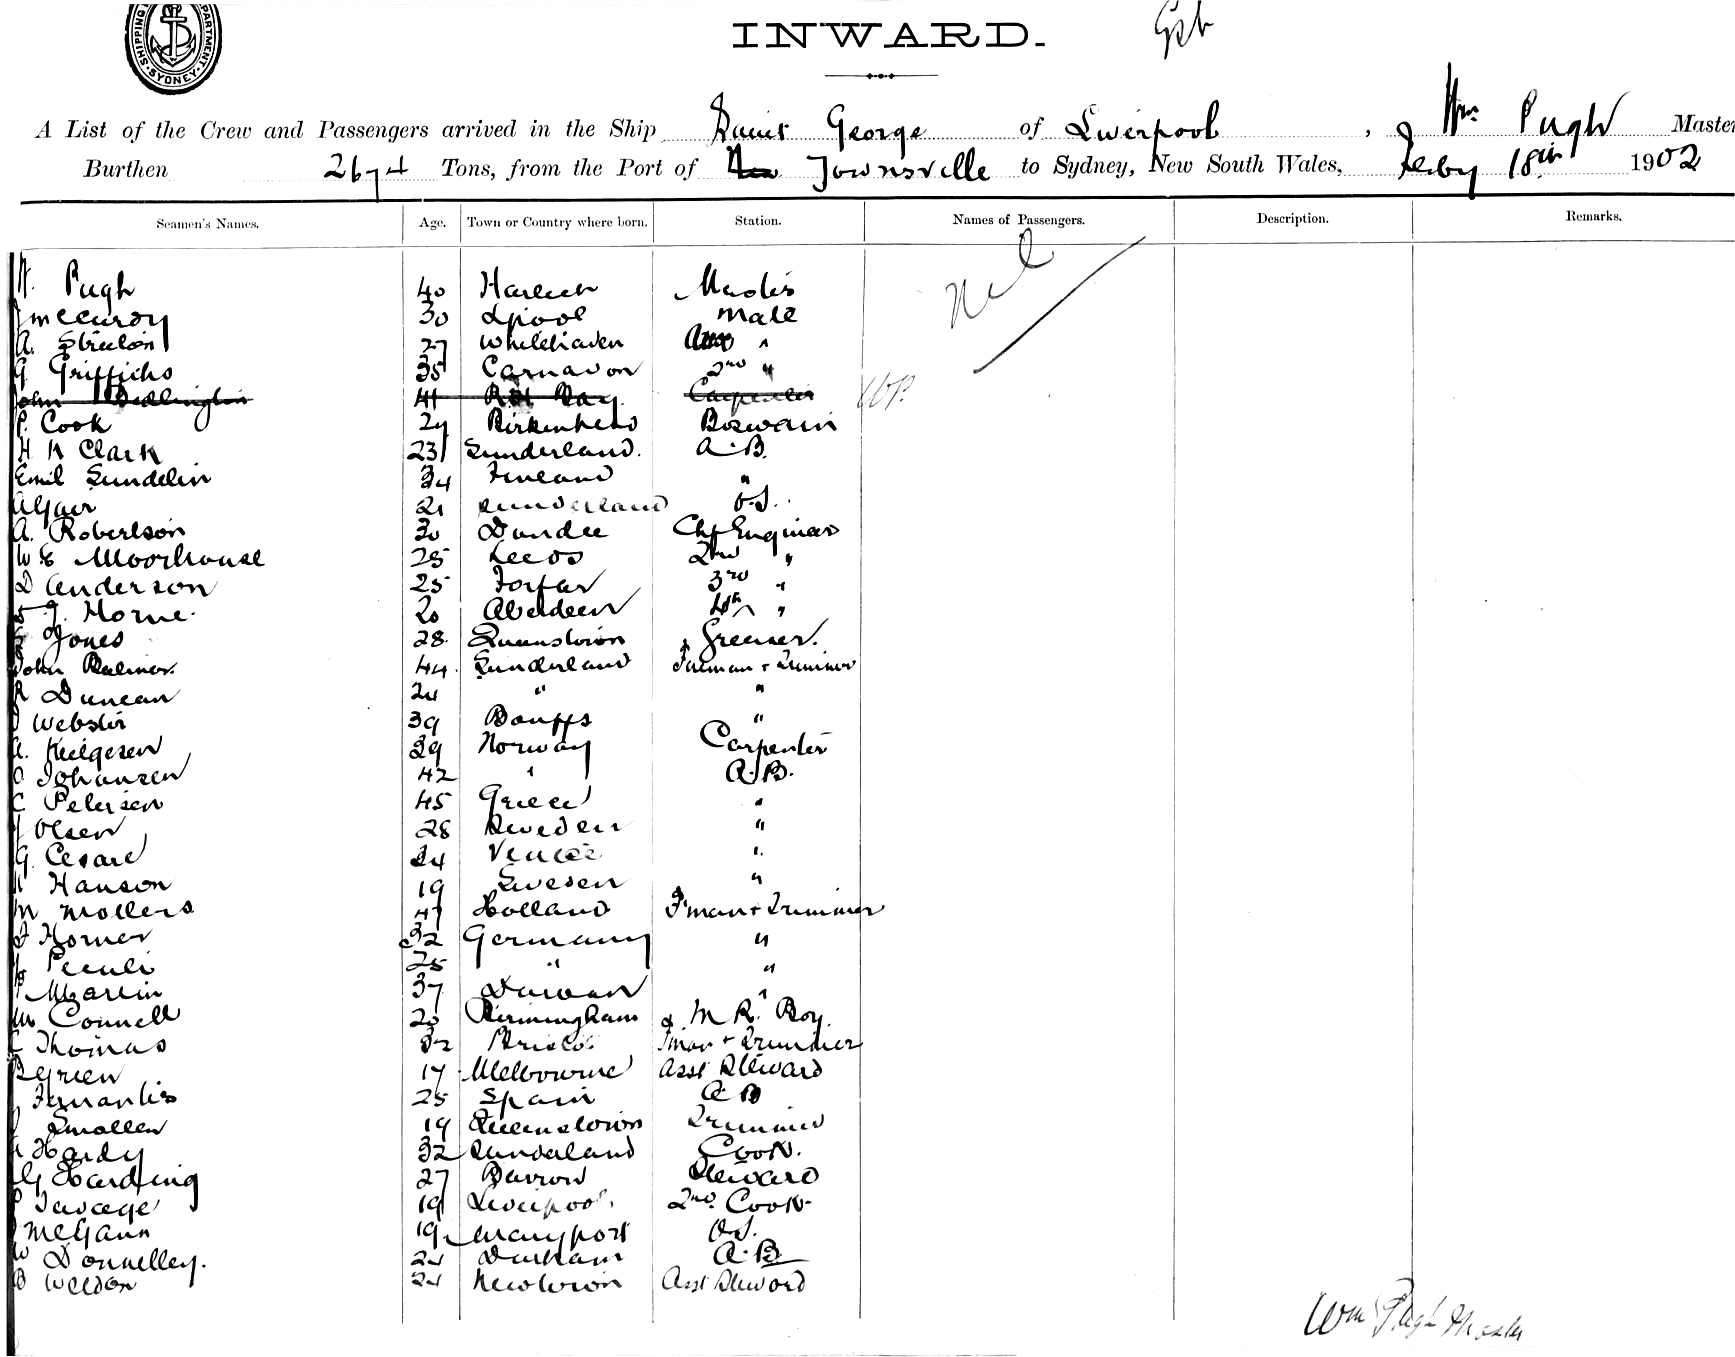 SHIPPING DEPARTMENT. SYDNEY.
INWARD.
A List of the Crew and Passengers arrived in the Ship Saint George of Liverpool, Wm Pugh Master
Burthen 2674 Tons, from the Port of Townsville to Sydney, New South Wales, Feby 18th 1902
Seamen's Names. Age. Town or Country where born. Station. Names of Passengers. Description. Remarks.
Nil
W. Pugh 40 Harlech Master
McCurdy 30 Lpool Mate
A. 27 Whitehaven "
G. Griffiths 35 Carnavon 2nd "
John Bedlington 41 Bay Carpenter
P. Cook 24 Birkenhead Boswain
H K Clark 23 Sunderland. A.B.
Emil Sundelin 34 Finland "
21 Sunderland O.S.
A. Robertson 30 Dundee Chf Engineer
W E Moorhouse 25 Leeds 2nd "
D Anderson 25 Forfar 3rd "
J. Horne. 20 Aberdeen 4th "
Jones 28 Queenstown Greaser.
John Palmer. 44 Sunderland Fireman + Trimmer
R Duncan 24 " "
Webster 39 Banffs "
A. Helgesen 29 Norway Carpenter
O Johansen 42 " A.B.
C Petersen 45 Greece "
Olsen 28 Sweden "
G. Cesare 24 Venice "
Hanson 19 Sweden "
M Mollers 47 Holland F'man + Trimmer
Horner 32 Germany "
25 " "
Martin 37 "
Connell 20 Birmingham M. R. Boy.
C Thomas 32 Bristol Fman + Trimmer
B Green 17 Melbourne Asst Steward
Fernandes 25 Spain A B
Smollen 19 Queenstown Trimmer
A Hardy 32 Sunderland Cook.
W G Harding 27 Barrow Steward
P Savage 19 Liverpool. 2nd Cook
McGann 19 Maryport O.S.
W Donnelley. 24 Durham A.B
B Weldon 24 Newtown Asst Steward
Wm Pugh Master